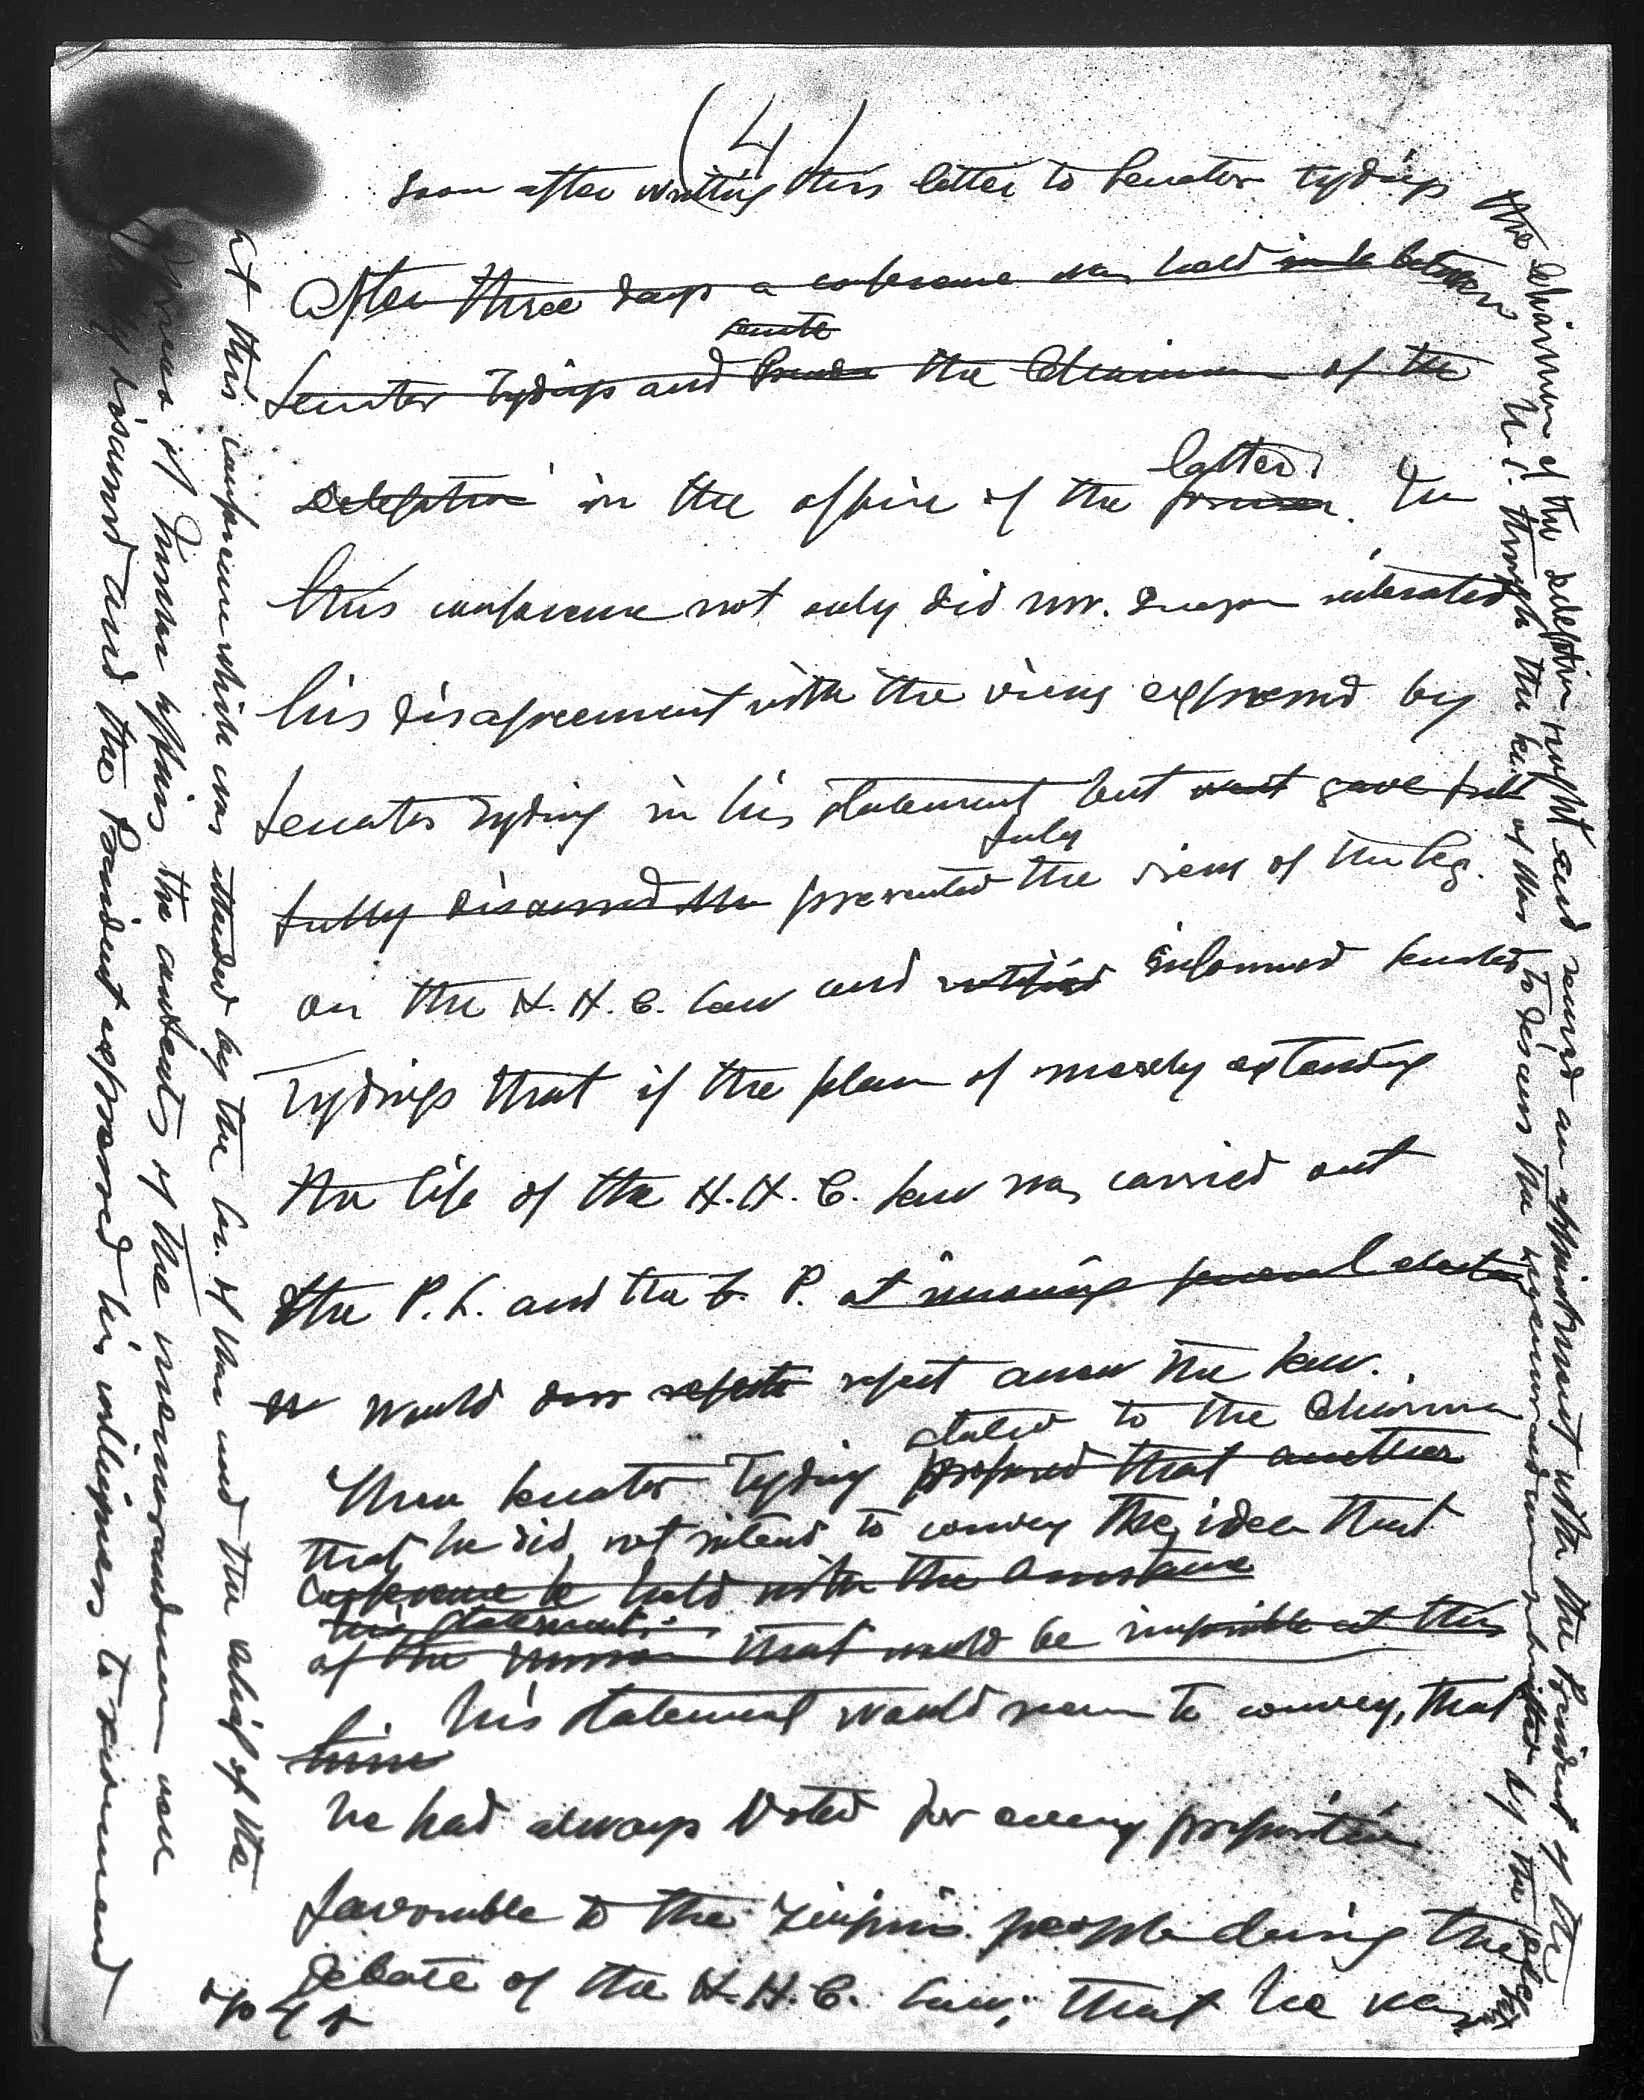 (4)
Soon after writing this letter to Senator Tydings
After three days a conference was held in between
Senate
Senator Tydings and the Chairman of the
Delegation in the office of the former. In
latter.
this conference not only did Mr. Quezon reiterated
his disagreement with the views expressed by
Senator Tydings in his statement but went gave full
fully
fully discussed the presented the views of the Leg.
on the H. H. C. law and notified informed Senator
Tydings that if the plan of merely extending
the life of the H. H. C. law was carried out
the P. L. and the F. P. at ensuing general election
would reject anew the law.
stated to the Chairman
Then Senator Tydings proposed that another
that he did not intend to convey the idea that
conference be held with the assistance
his statement
of the that would be impossible at this
his statement would seem to convey, that
time
he had always voted for every proposition
favorable to the Filipino people during the
debate of the H. H. C. law; that he was
the chairman of the delegation sought and secured an appointment with the President of the
U.S. through the Sec. of War to discuss the memorandum submitted by the
At this conference which was attended by the Sec. of War and the chief of the
Bureau of Insular Affairs the contents of the memorandum were
fully discussed and the President expressed his willingness to recommend